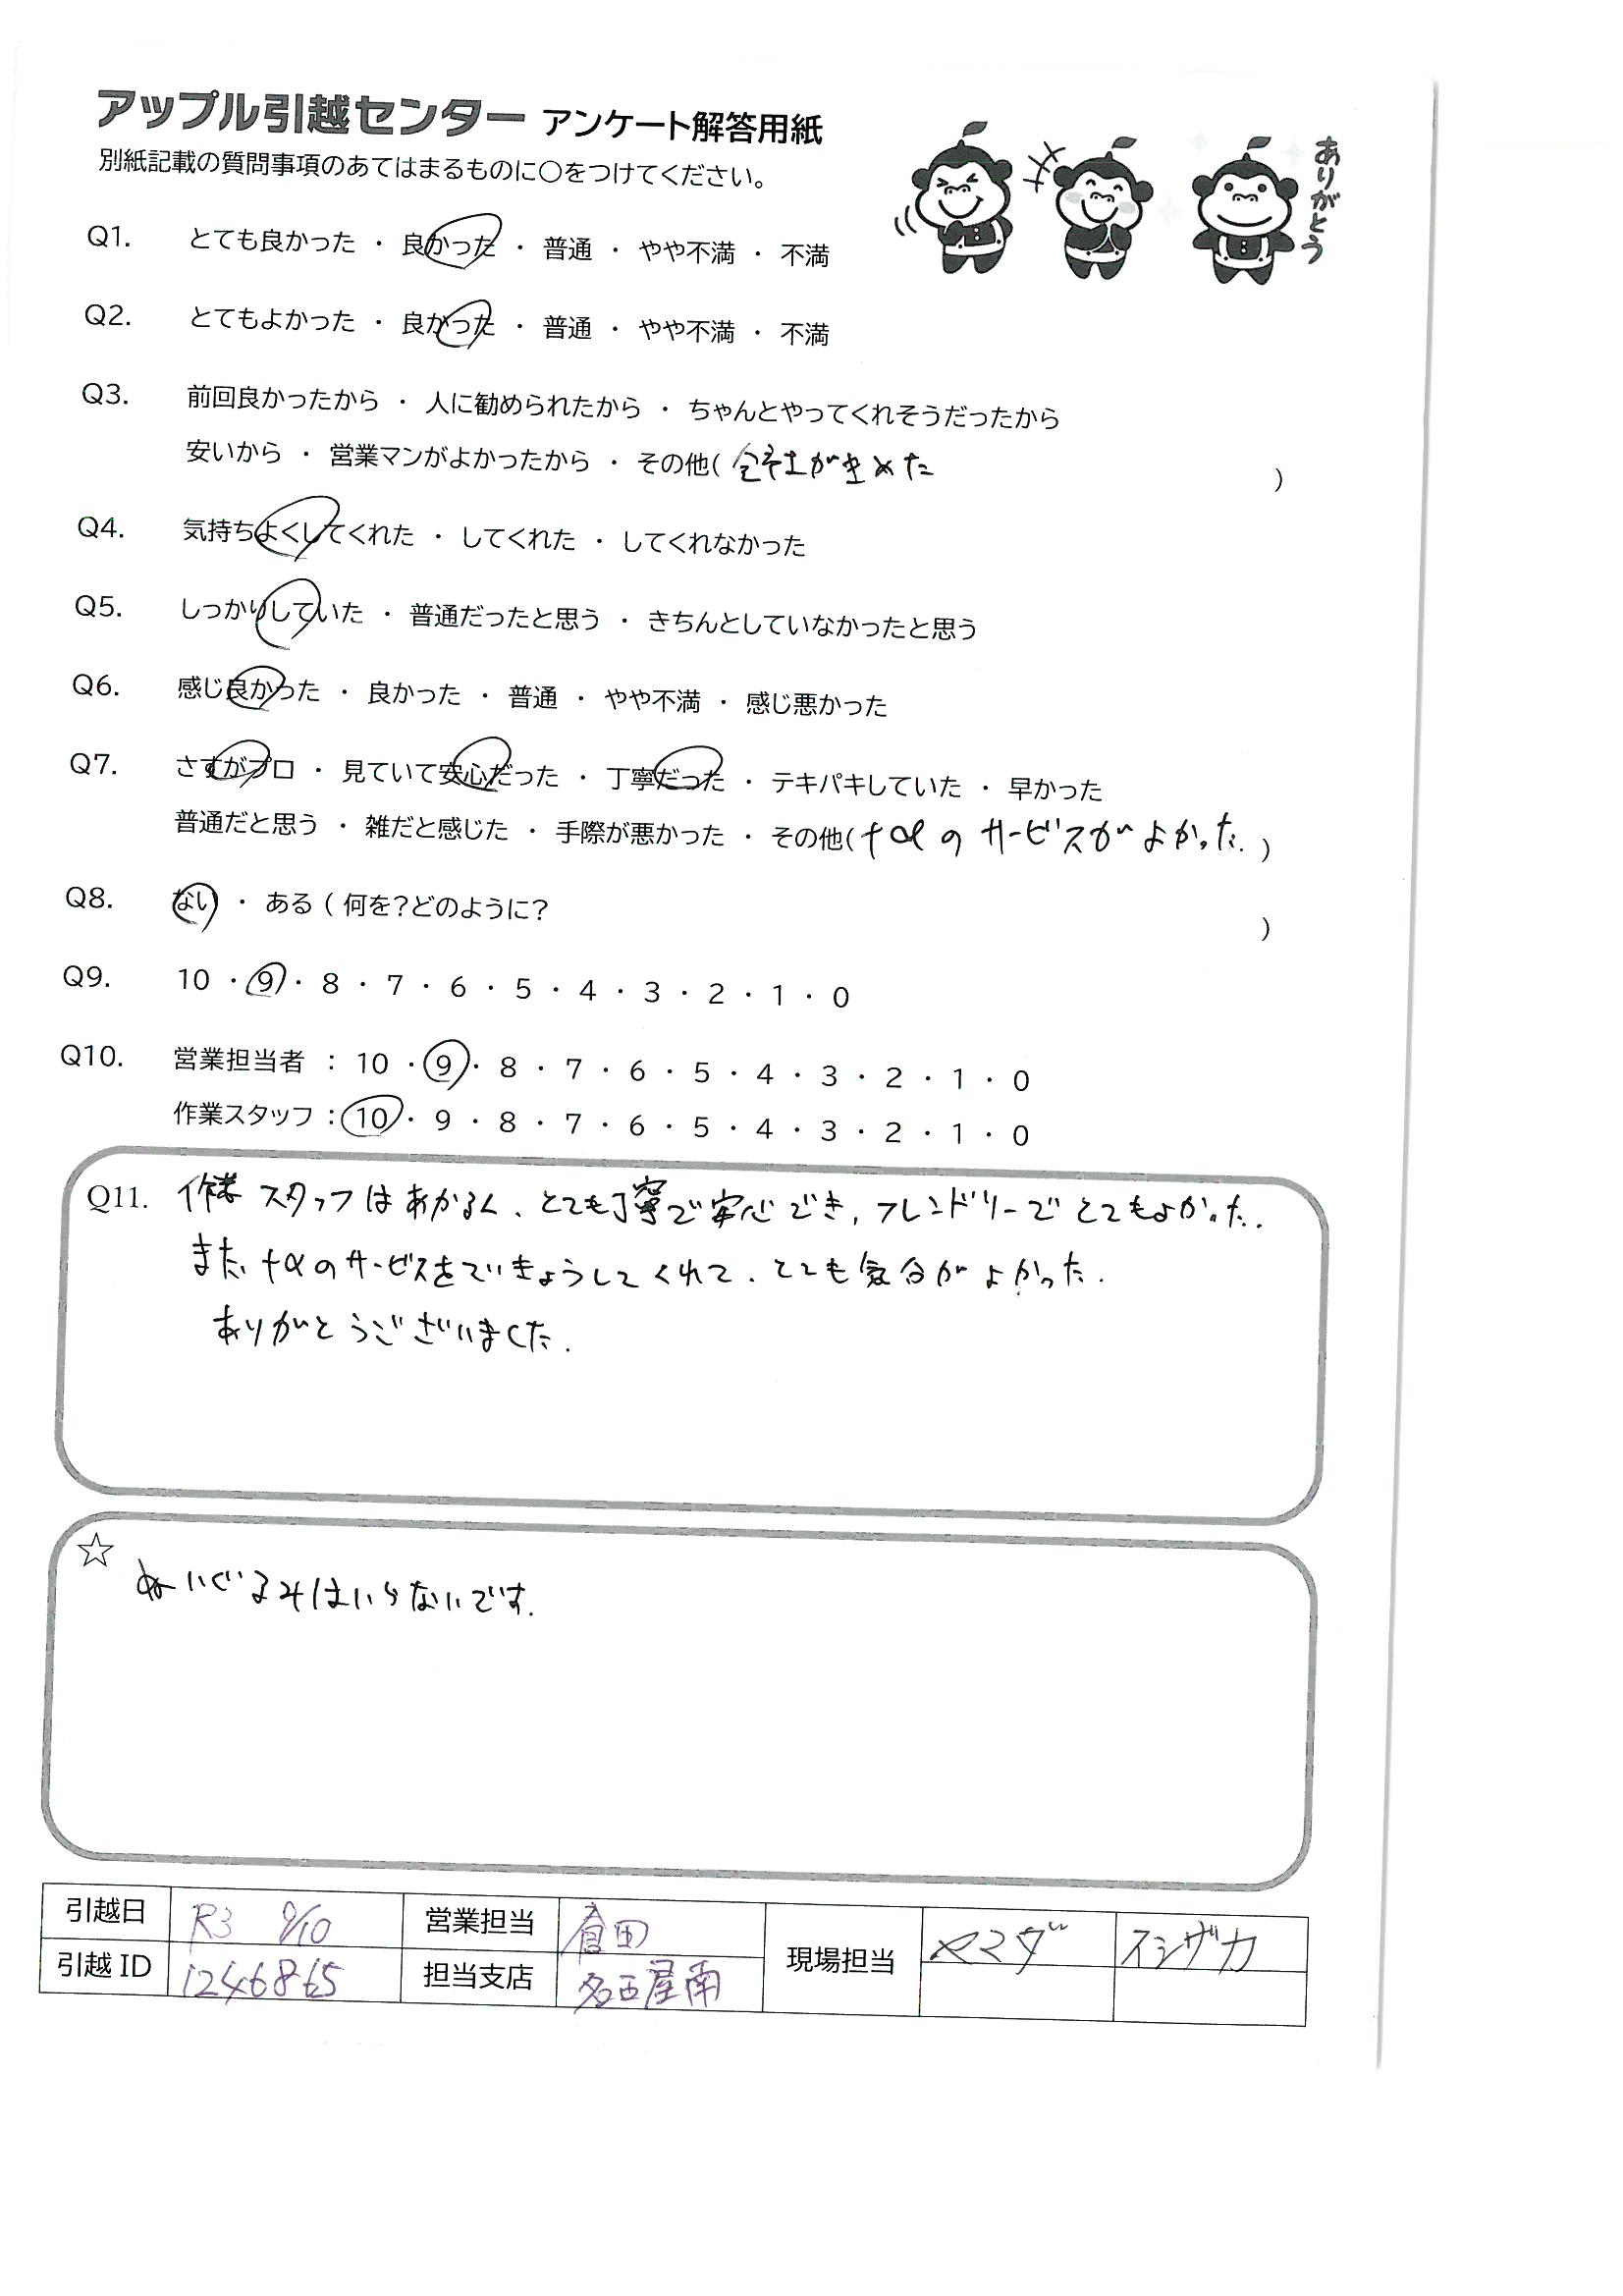 アップル引越センター アンケート解答用紙
別紙記載の質問事項のあてはまるものに〇をつけてください。
ありがとう
Q1. とても良かった ・ 良かった ・ 普通 ・ やや不満 ・ 不満
Q2. とてもよかった ・ 良かった ・ 普通 ・ やや不満 ・ 不満
Q3. 前回良かったから ・ 人に勧められたから ・ ちゃんとやってくれそうだったから
安いから ・ 営業マンがよかったから ・ その他( 会社がきめた )
Q4. 気持ちよくしてくれた ・ してくれた ・ してくれなかった
Q5. しっかりしていた ・ 普通だったと思う ・ きちんとしていなかったと思う
Q6. 感じ良かった ・ 良かった ・ 普通 ・ やや不満 ・ 感じ悪かった
Q7. さすがプロ ・ 見ていて安心だった ・ 丁寧だった ・ テキパキしていた ・ 早かった
普通だと思う ・ 雑だと感じた ・ 手際が悪かった ・ その他( +αのサービスがよかった. )
Q8. ない ・ ある ( 何を?どのように? )
Q9. 10 ・ 9 ・ 8 ・ 7 ・ 6 ・ 5 ・ 4 ・ 3 ・ 2 ・ 1 ・ 0
Q10. 営業担当者 : 10 ・ 9 ・ 8 ・ 7 ・ 6 ・ 5 ・ 4 ・ 3 ・ 2 ・ 1 ・ 0
作業スタッフ : 10 ・ 9 ・ 8 ・ 7 ・ 6 ・ 5 ・ 4 ・ 3 ・ 2 ・ 1 ・ 0
Q11. 作業スタッフはあかるく、とても丁寧で安心でき, フレンドリーでとてもよかった.
また、+αのサービスをていきょうしてくれて、とても気分がよかった.
ありがとうございました.
☆ ぬいぐるみはいらないです.
引越日 R3 9/10 営業担当 倉田 現場担当 ヤマダ イシザカ
引越 ID 1246865 担当支店 名古屋南